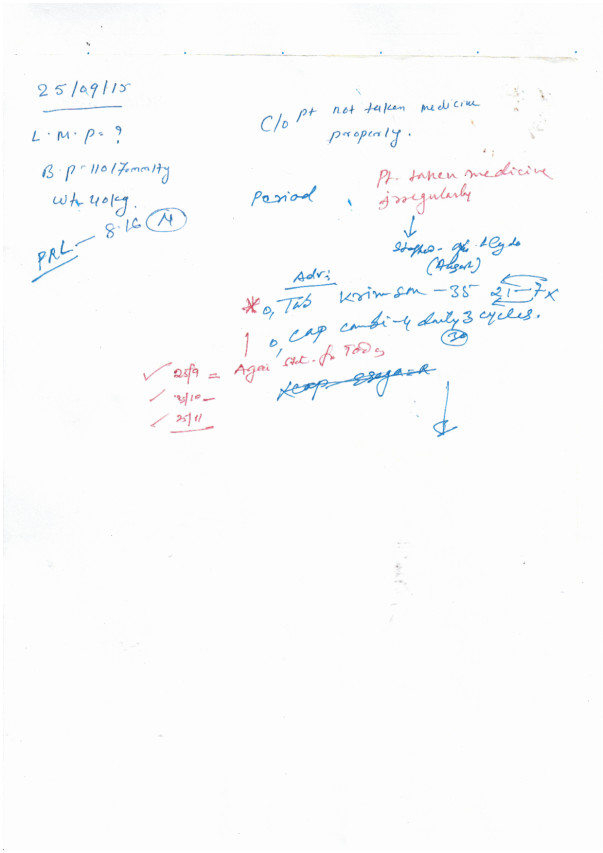 25/09/15
L.M.P = ?
B.P - 110/70mmHg
Wt - 40kg.
PRL - 8.16 N
C/o Pt not taken medicine
properly.
Period
Pt. taken medicine
irregularly
(August)
Adv:
* o, Tab Krimson - 35 21-7 x
o, cap combi-4 daily 3 cycles.
30
25/9 = Again start for Today
25/11